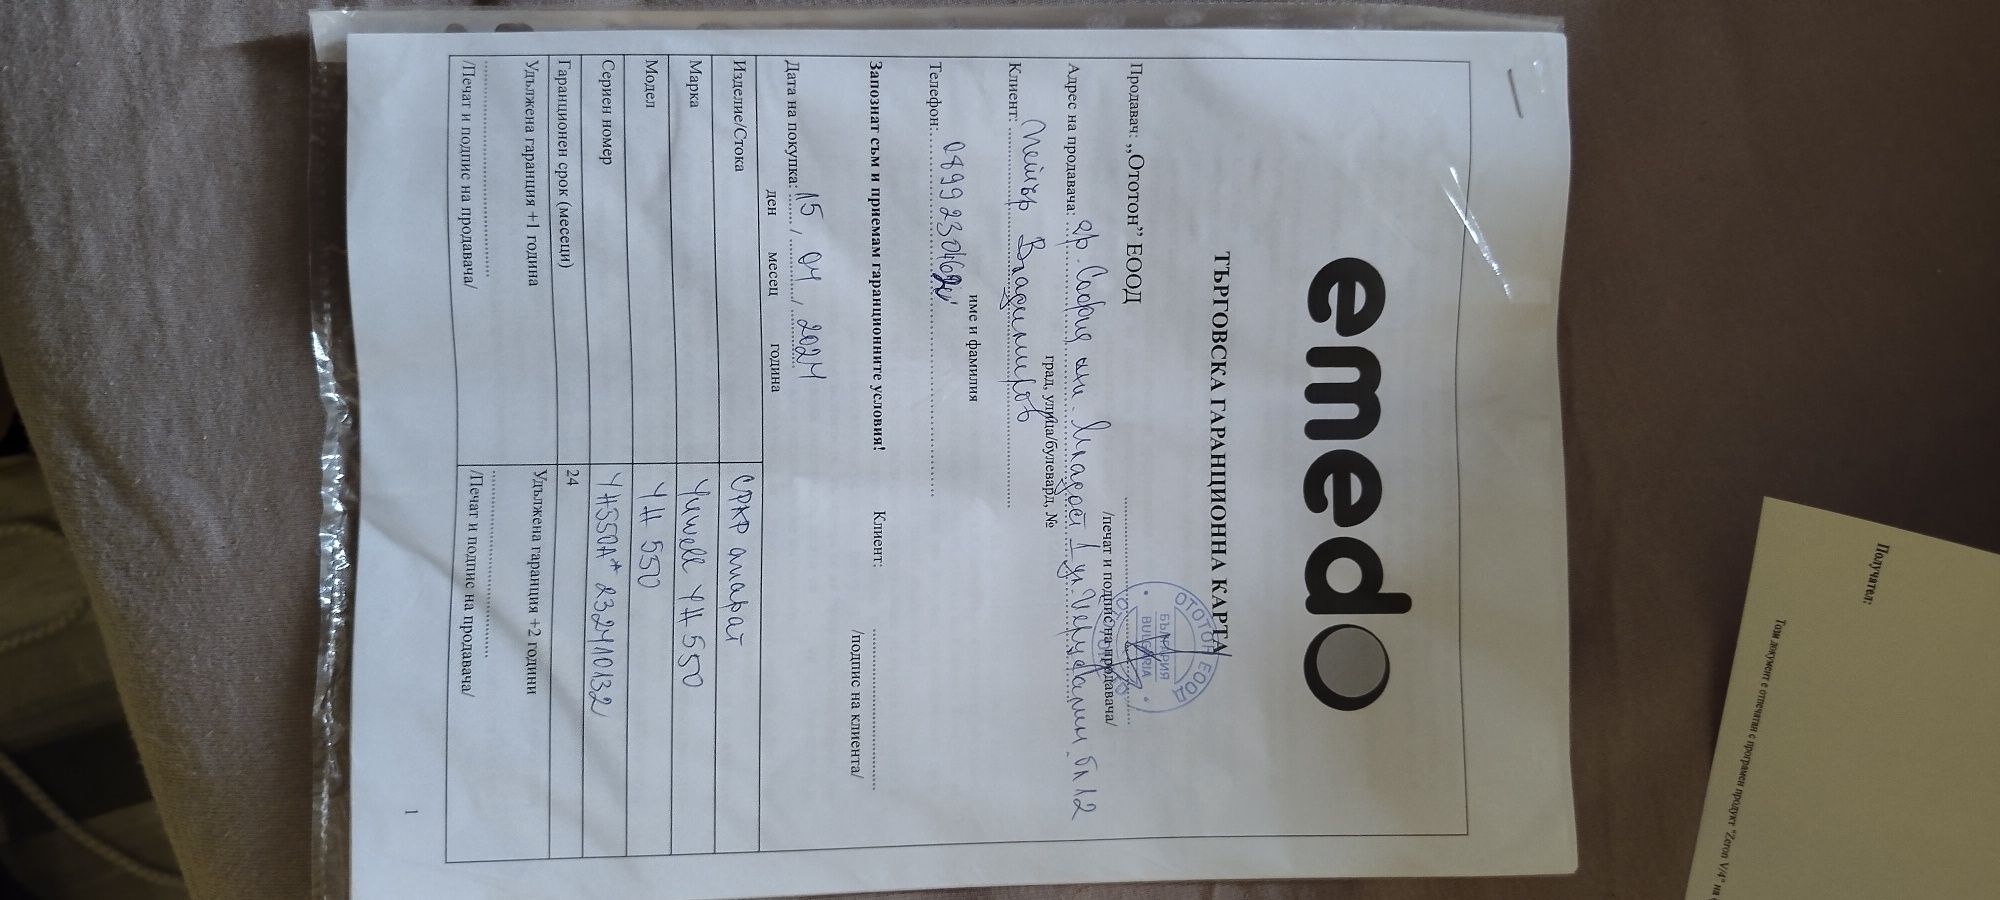 emedo
ТЪРГОВСКА ГАРАНЦИОННА КАРТА
Продавач: „Ототон” ЕООД
/печат и подпис на продавача/
ОТОТОН ЕООД
БЪЛГАРИЯ
BULGARIA
Адрес на продавача: гр. София жк. Младост 1 ул. бл 12
град, улица/булевард, №
Клиент: Петър Владимиров
име и фамилия
Телефон:
Запознат съм и приемам гаранционните условия! Клиент:
/подпис на клиента/
Дата на покупка: 15 / 04 / 2024
ден месец година
Изделие/Стока CPAP апарат
Марка Yuwell YH 550
Модел YH 550
Сериен номер YH550A* 232410132
Гаранционен срок (месеци) 24
Удължена гаранция +1 година Удължена гаранция +2 години
/Печат и подпис на продавача/ /Печат и подпис на продавача/
1
Получател:
Този документ е отпечатан с програмен продукт "Zeron V/4" на